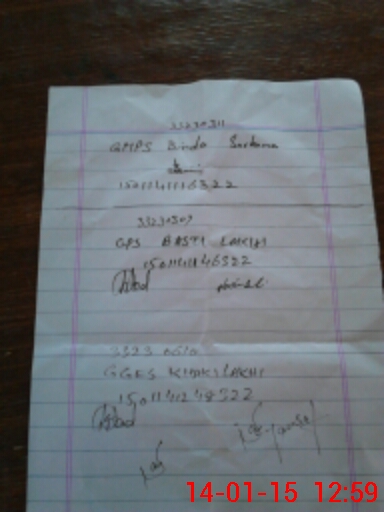 33230311
GMPS Binda Sarkana
1501141116322
33230307
GPS BASTI LAKHI
150114146322
3323 0610
GGES KHOKI LAKHI
1501141248322
14-01-15 12:59